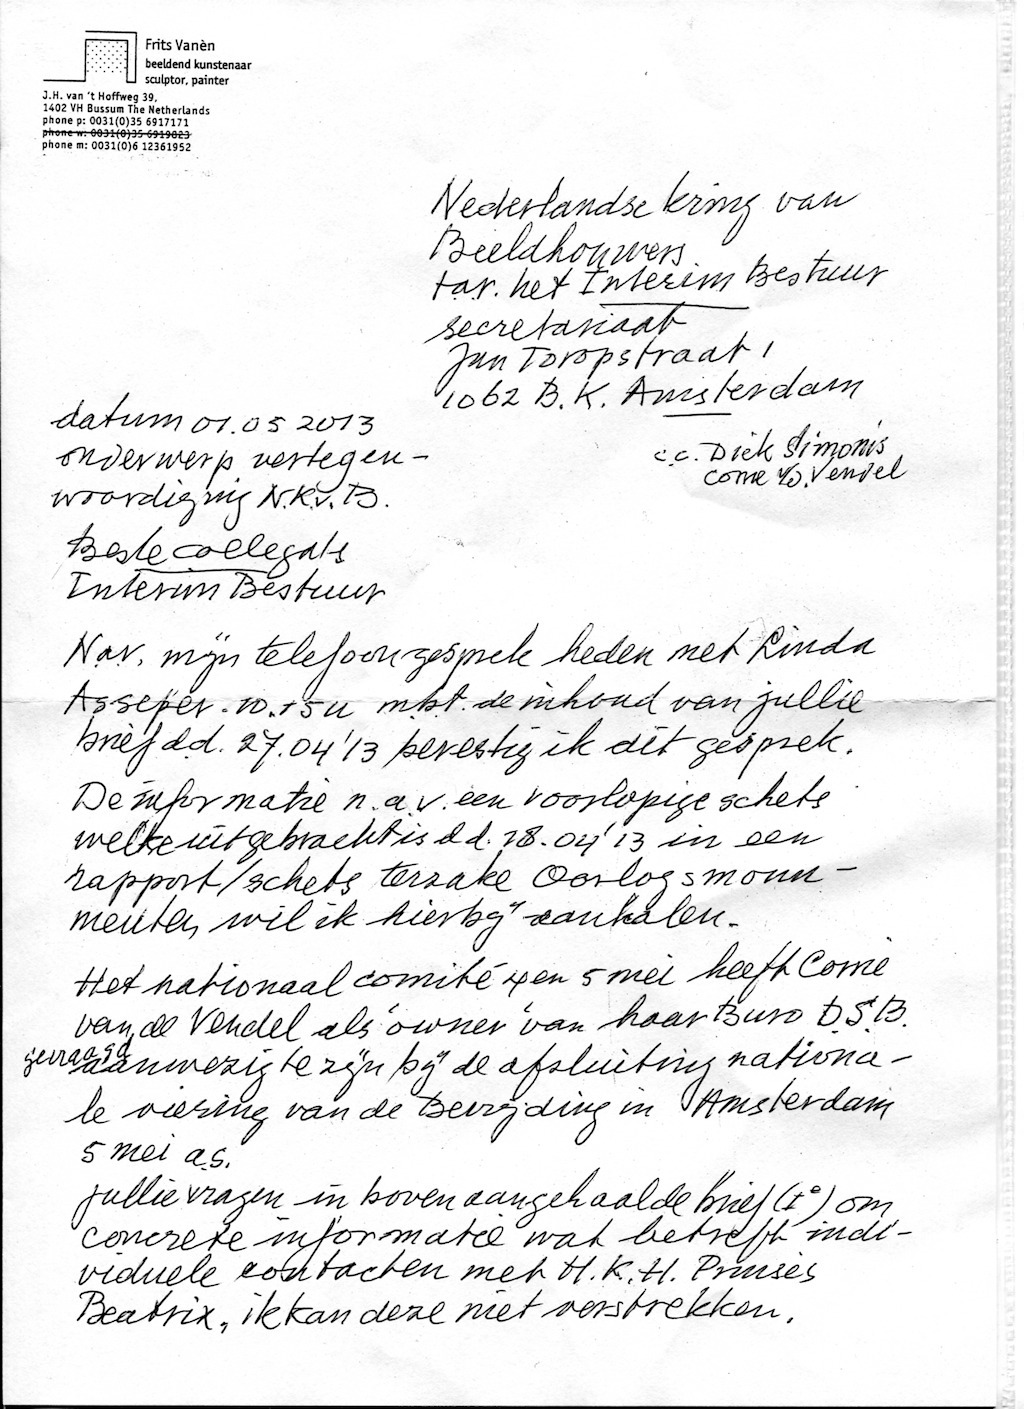 Frits Vanèn
beeldend kunstenaar
sculptor, painter
J.H. van 't Hoffweg 39,
1402 VH Bussum The Netherlands
phone p: 0031(0)35 6917171
phone w: 0031(0)35 6919823
phone m: 0031(0)6 12361952
Nederlandse kring van
Beeldhouwers
t.a.v. het Interim Bestuur
secretariaat
Jan Toropstraat 1
1062 B.K. Amsterdam
c.c. Dick Simonis
Corrie v/d. Vendel
datum 01.05 2013
onderwerp vertegen-
woordiging N.K.v.B.
Beste collega's
Interim Bestuur
N.a.v. mijn telefoongesprek heden met Linda
10.15u m.b.t. de inhoud van jullie
brief d.d. 27.04'13 bevestig ik dit gesprek.
De informatie n.a.v. een voorlopige schets
welke uitgebracht is d.d. 28.04'13 in een
rapport/schets terzake Oorlogsmonu-
menten, wil ik hierbij aanhalen.
Het nationaal comité 4 en 5 mei heeft Corrie
van de Vendel als 'owner' van haar Buro D.S.B.
gevraagd aanwezig te zijn bij de afsluiting nationa-
le viering van de Bevrijding in Amsterdam
5 mei a.s.
Jullie vragen in bovenaangehaalde brief (1°) om
concrete informatie wat betreft indi-
viduele contacten met H.K.H. Prinses
Beatrix, ik kan deze niet verstrekken.